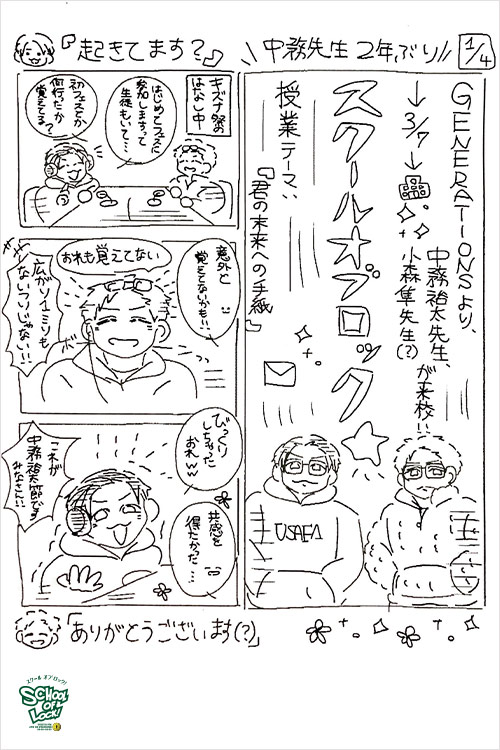 \\中務先生2年ぶり//
1/4
GENERATIONSより、
↓3/7↓
中務裕太先生、
小森隼先生(?)
が来校!!
スクールオブロック
授業テーマ:
『君の未来への手紙』
USAFA
『起きてます?』
キズナ祭の
はなし中
はじめてフェスに
参加しますって
生徒もいて…
初フェスとか
何行だか
覚えてる?
意外と
覚えてないかも!!
おれも覚えてない
広がり1ミリも
ないフリじゃない!!
びっくり
しちゃった
おれww
共感を
得たかった…
これが
中務裕太郎です
みなさん!!
「ありがとうございます(?)」
スクール オブ ロック!
SCHOOL
OF
LOCK!